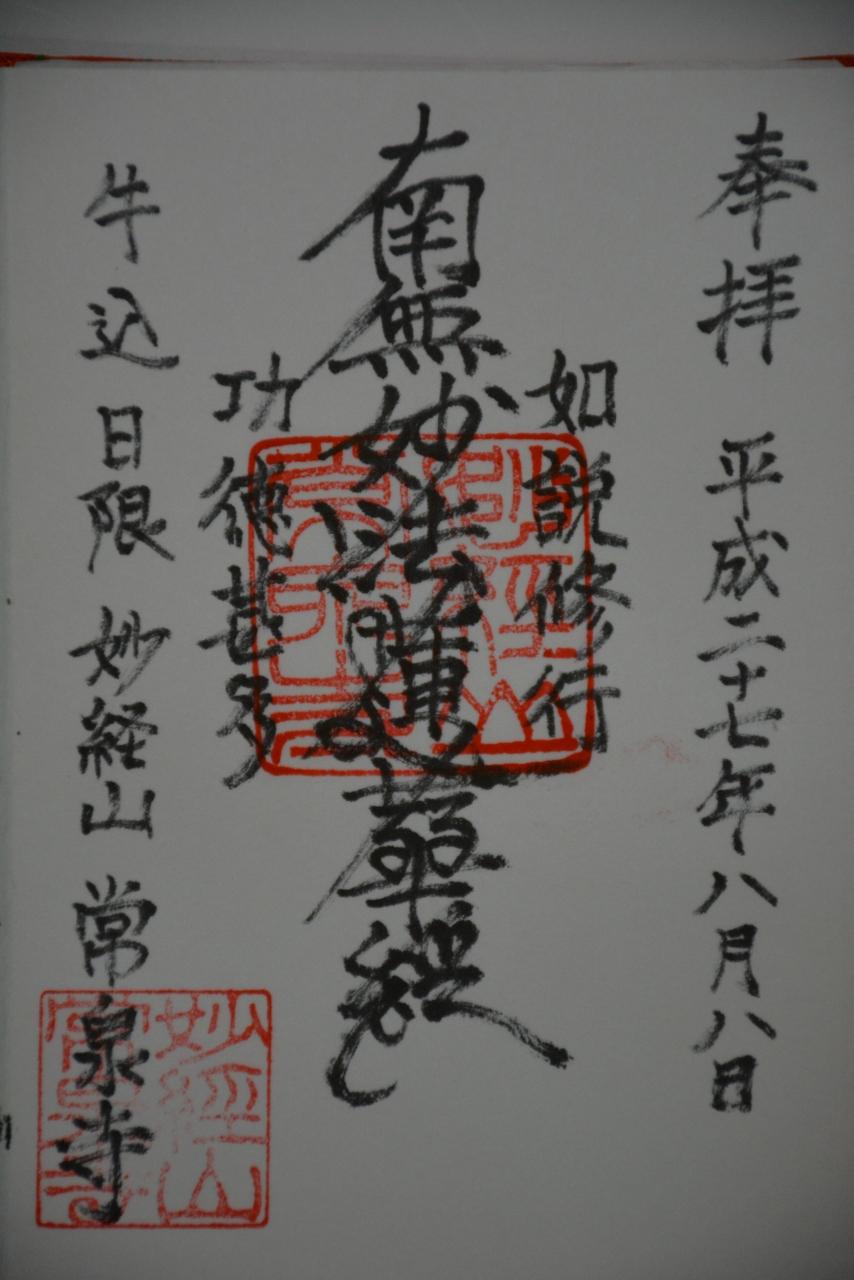 奉拝 平成二十七年八月八日
如説修行
南無妙法蓮華経
功徳甚多
牛込 日限 妙経山 常泉寺
妙經山
常泉寺